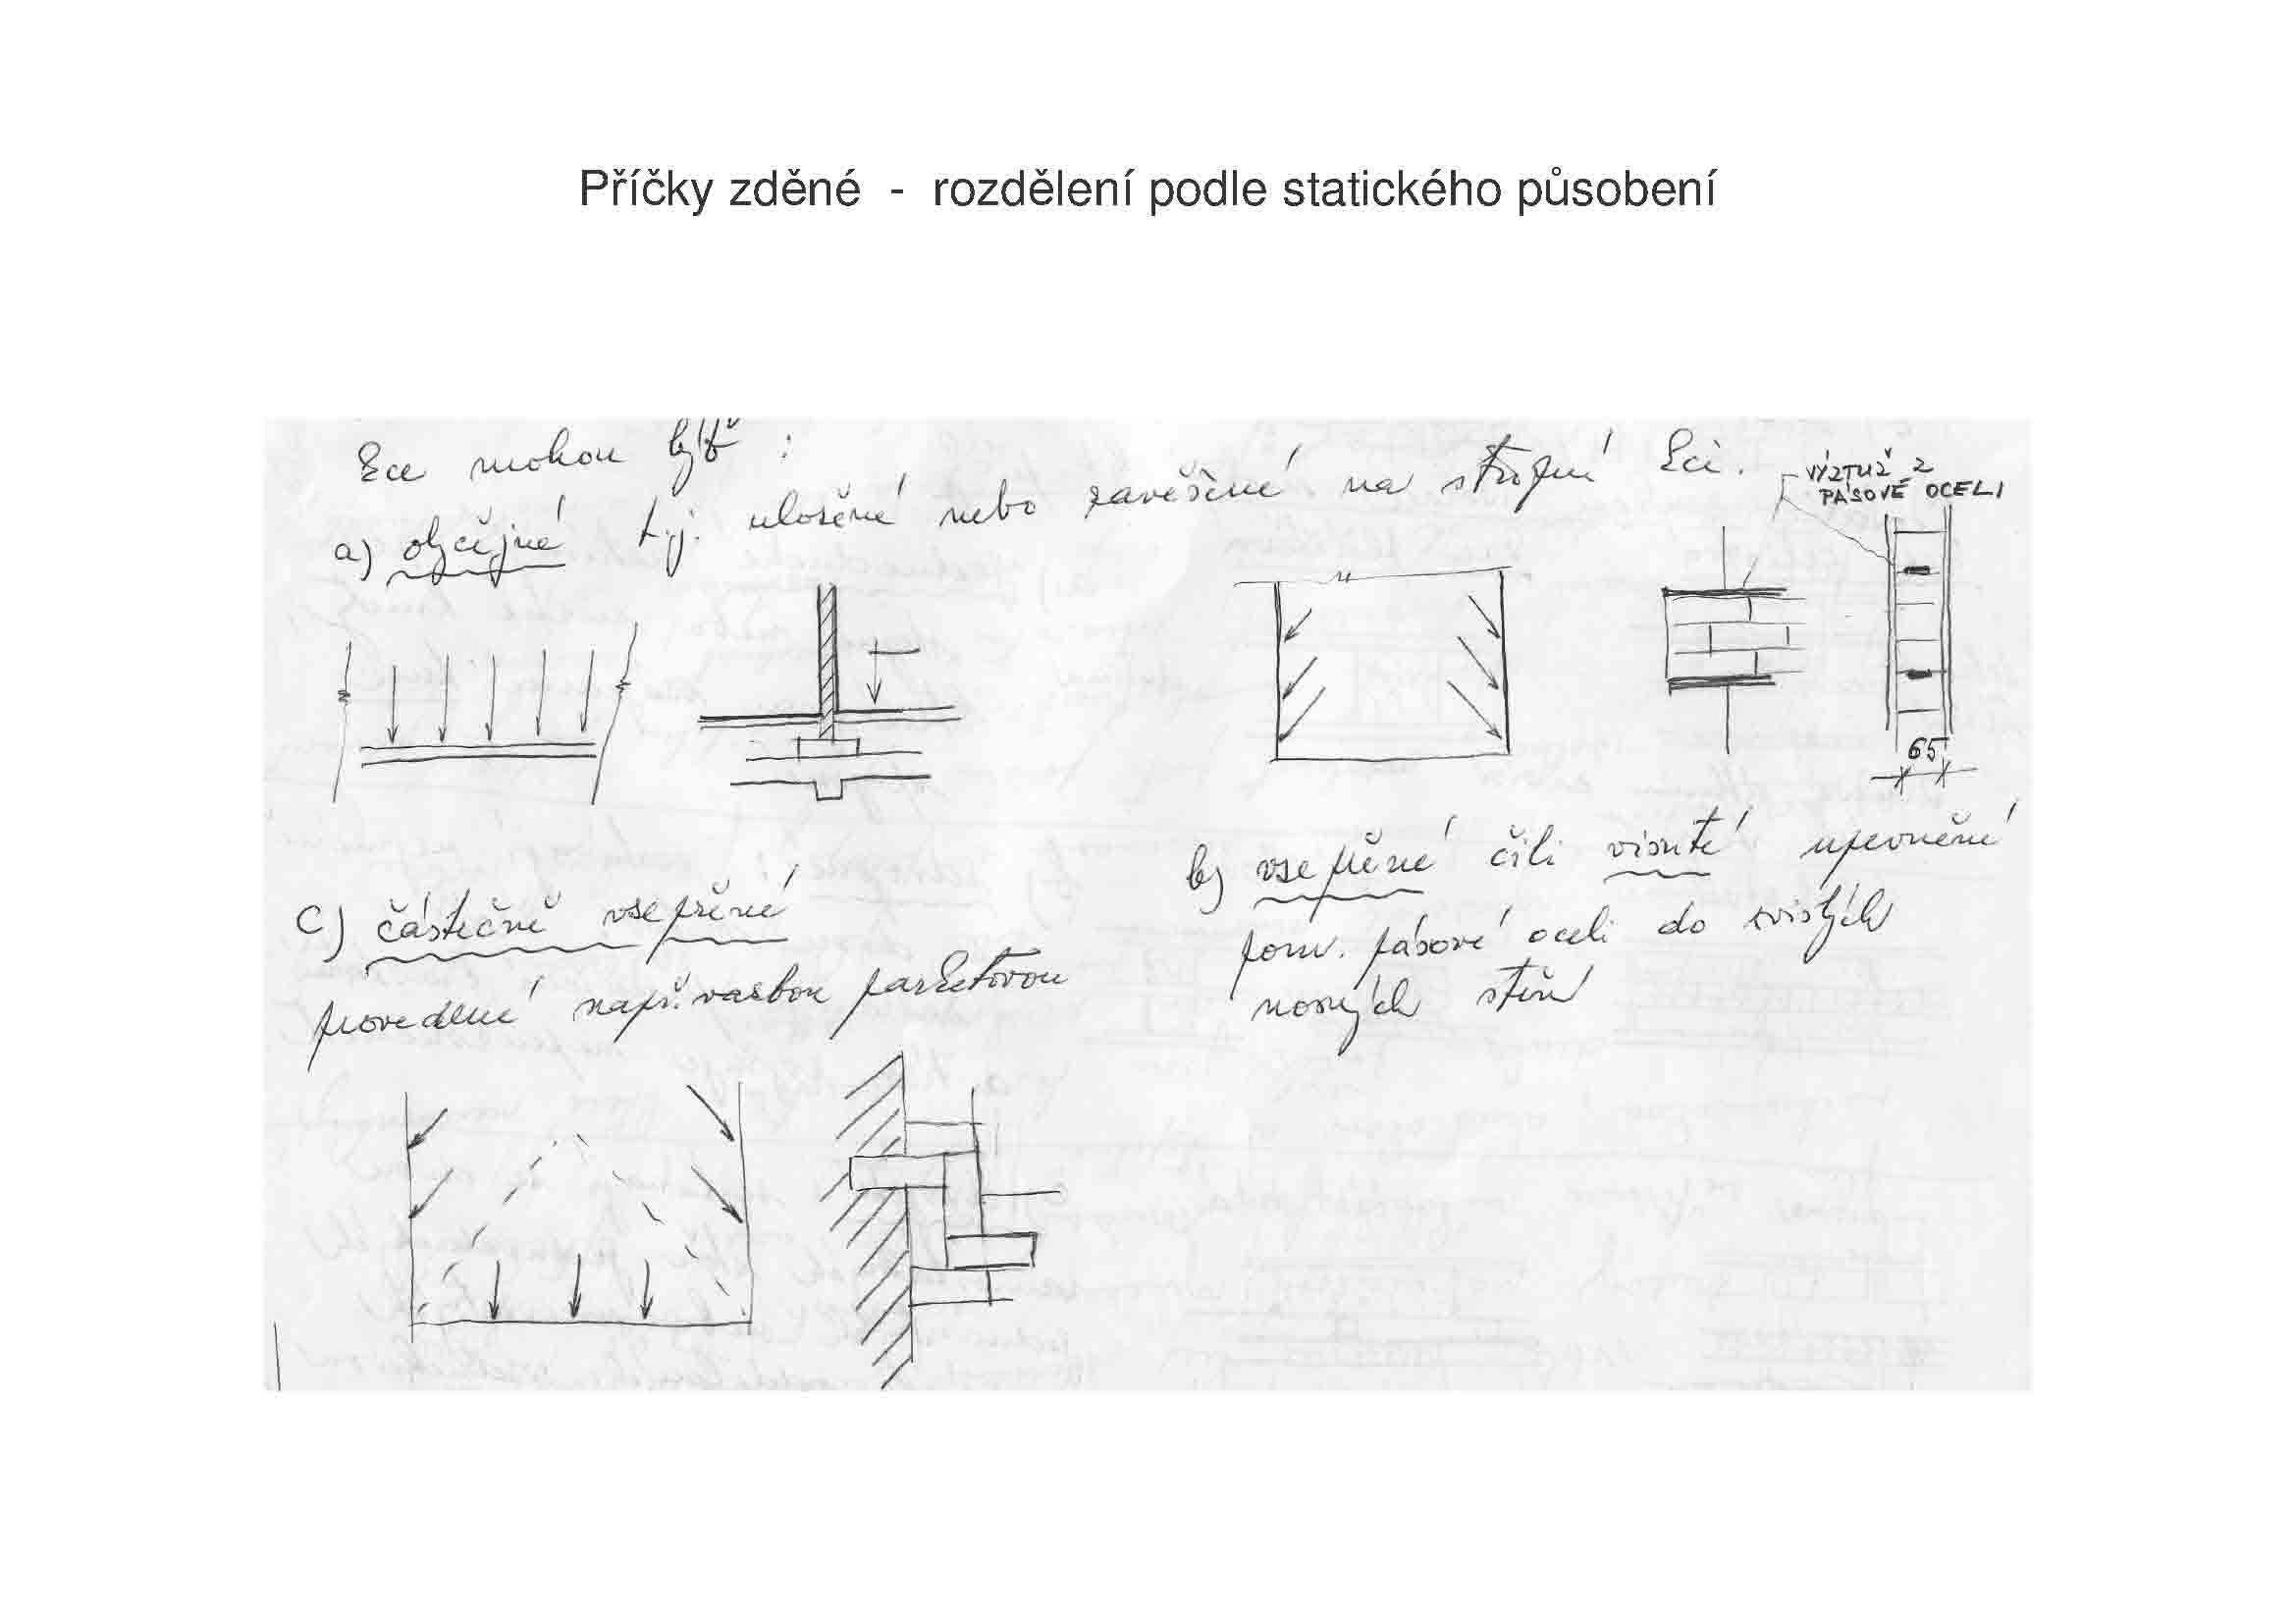 Příčky zděné - rozdělení podle statického působení
mohou být :
a) obyčejné t.j. uložené nebo zavěšené na stropní kci.
VÝZTUŽ Z
PÁSOVÉ OCELI
65
b) vzepřené čili visuté upevnění
pom. pásové oceli do svislých
nosných stěn
c) částečně vzepřené
provedené např. vazbou parketovou